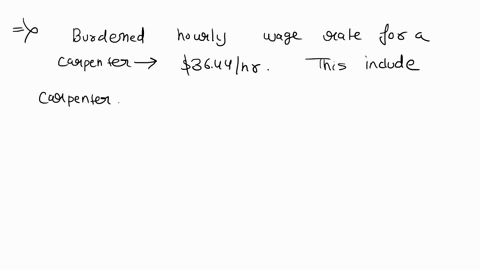 => Burdened hourly wage rate for a
carpenter → $36.44/hr. This include
carpenter.